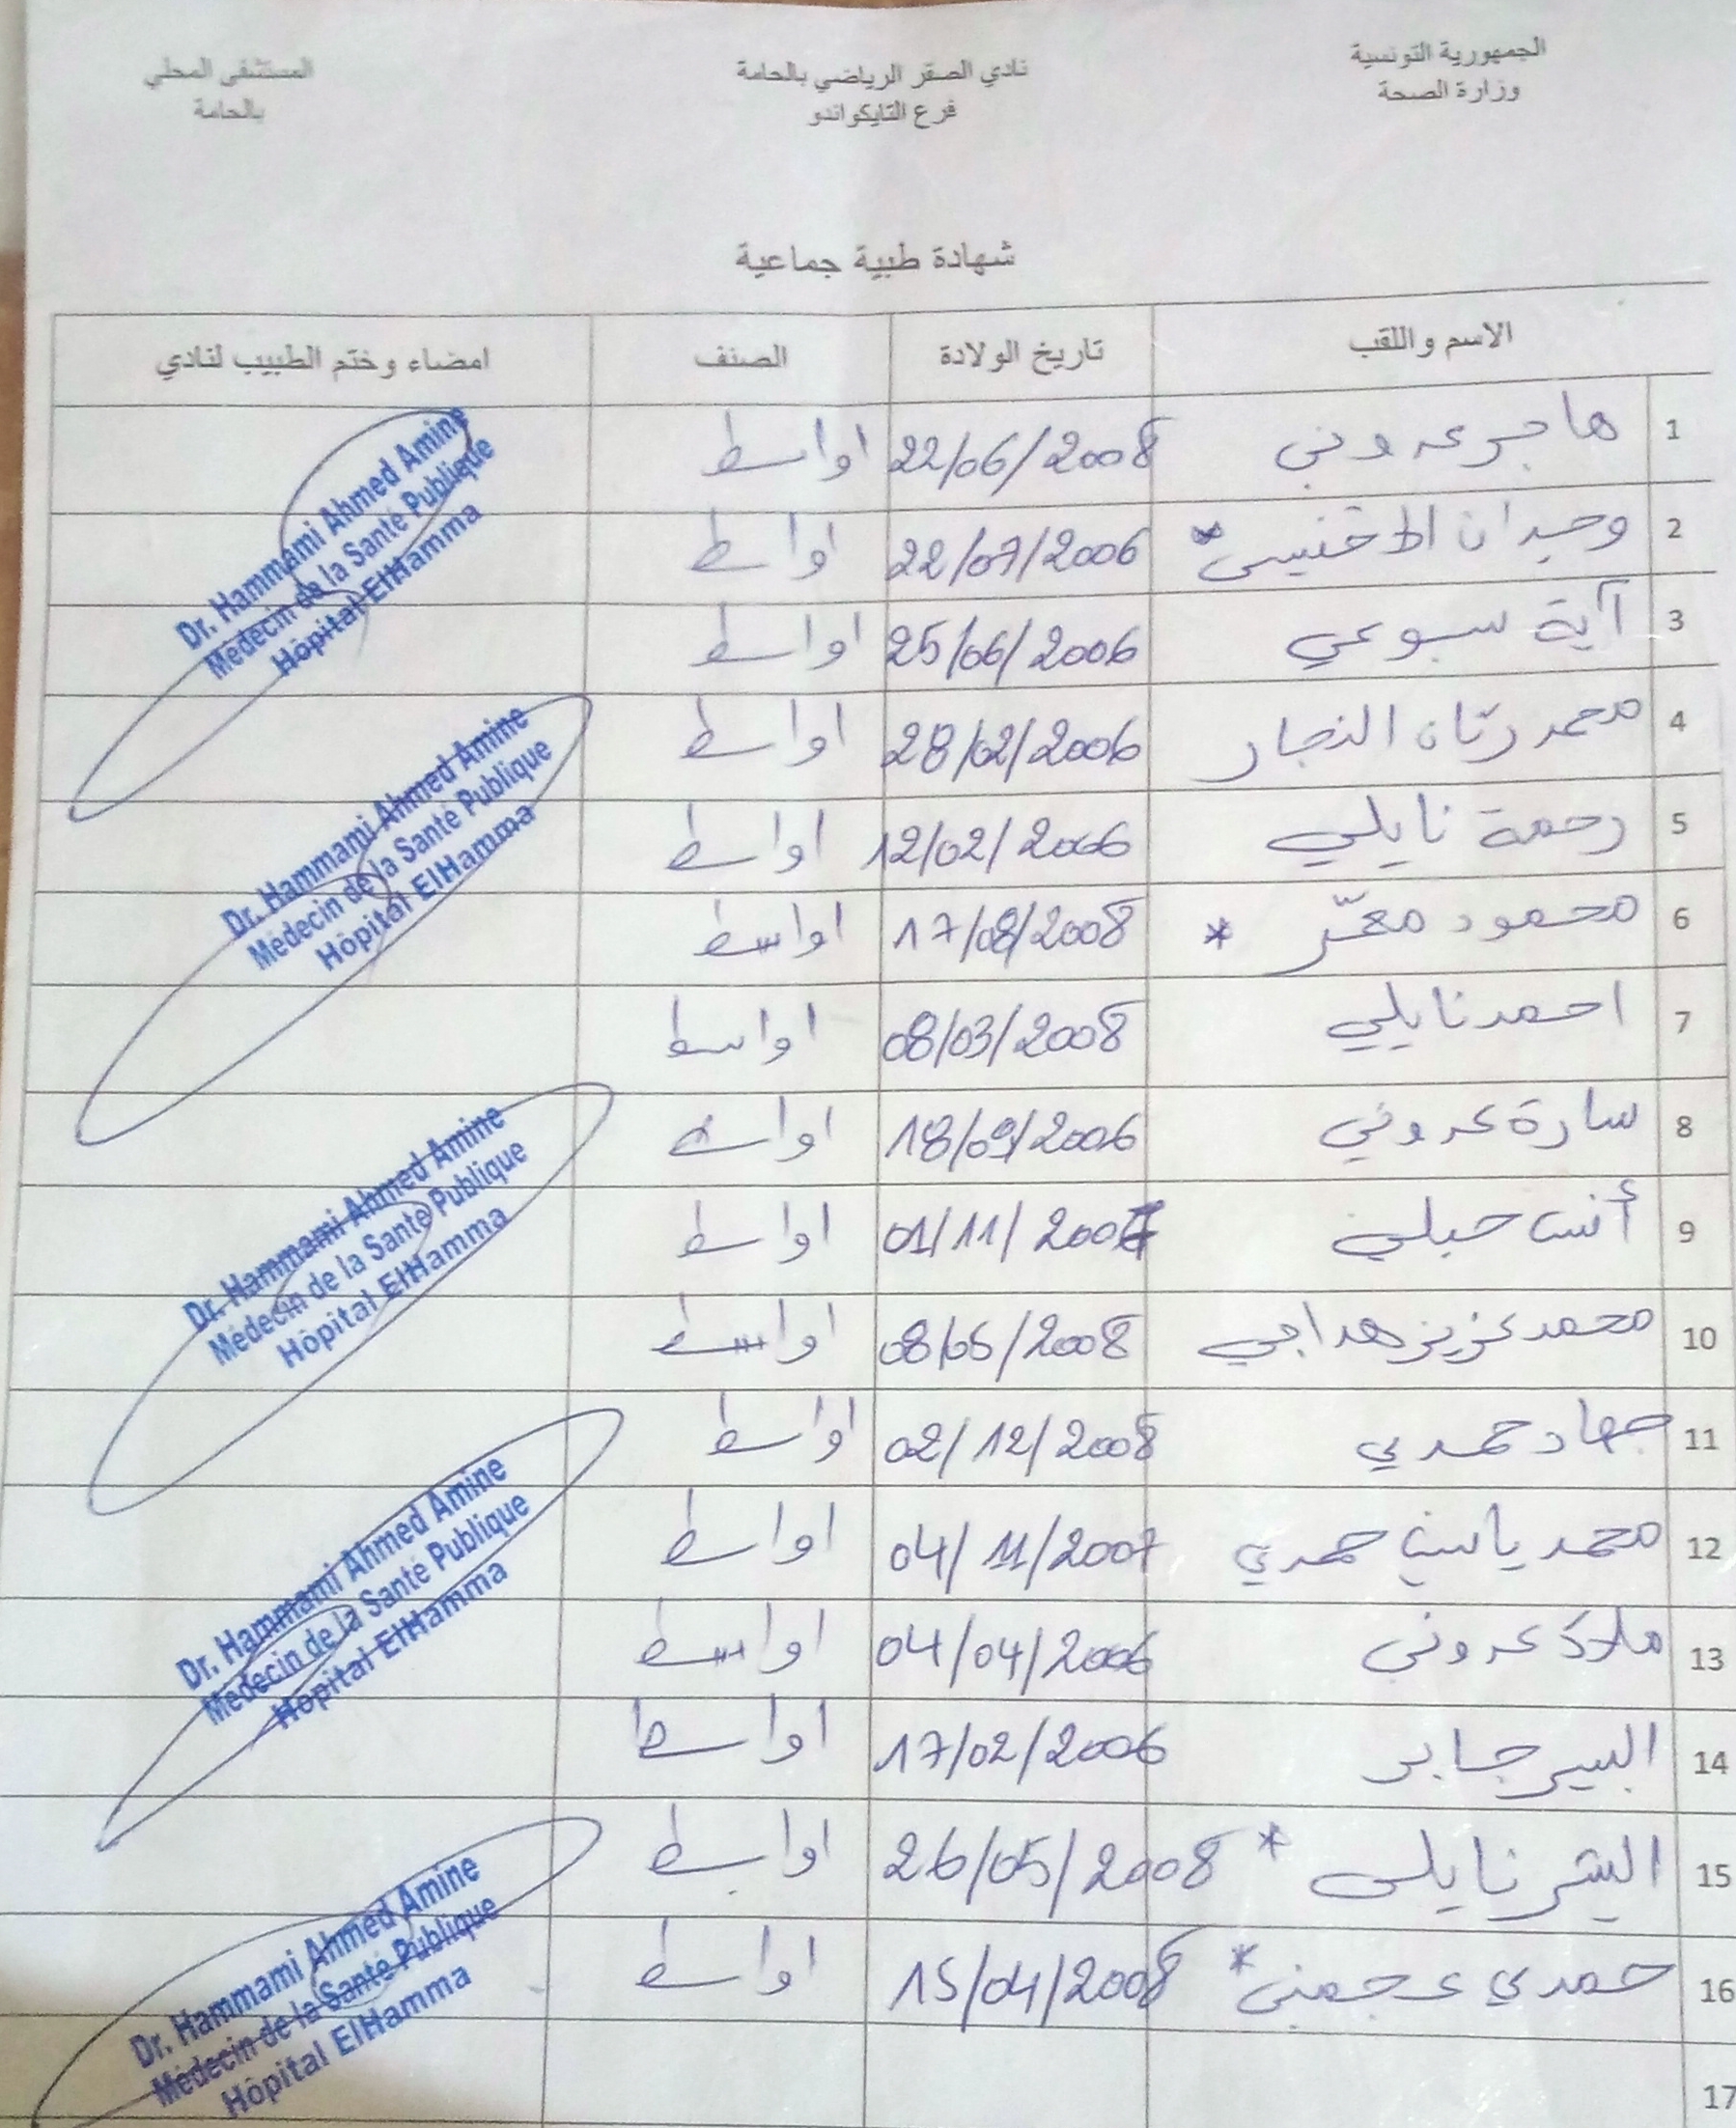 الجمهورية التونسية
وزارة الصحة
نادي الصقر الرياضي بالحامة
فرع التايكواندو
المستشفى المحلي
بالحامة
شهادة طبية جماعية
الاسم واللقب تاريخ الولادة الصنف امضاء وختم الطبيب لنادي
1 هاجر عروني 22/06/2008 اواسط
2 وجدان 22/07/2006 اواسط
3 آية سبوعي 25/06/2006 اواسط
4 محمد ريّان النجار 28/02/2006 اواسط
5 رحمة نايلي 12/02/2006 اواسط
6 محمود معمّر * 17/08/2008 اواسط
7 احمد نايلي 08/03/2008 اواسط
8 سارة عروني 18/09/2006 اواسط
9 أنس حبلي 01/11/2007 اواسط
10 محمد عزيز هداجي 08/05/2008 اواسط
11 جهاد حمدي 02/12/2008 اواسط
12 محمد ياسين حمدي 04/11/2007 اواسط
13 ملاك عروني 04/04/2006 اواسط
14 جابر 17/02/2006 اواسط
15 نايلي * 26/05/2008 اواسط
16 حمدي عجمني * 15/04/2008 اواسط
17
Dr. Hammami Ahmed Amine
Médecin de la Santé Publique
Hôpital ElHamma
Dr. Hammami Ahmed Amine
Médecin de la Santé Publique
Hôpital ElHamma
Dr. Hammami Ahmed Amine
Médecin de la Santé Publique
Hôpital ElHamma
Dr. Hammami Ahmed Amine
Médecin de la Santé Publique
Hôpital ElHamma
Dr. Hammami Ahmed Amine
Médecin de la Santé Publique
Hôpital ElHamma